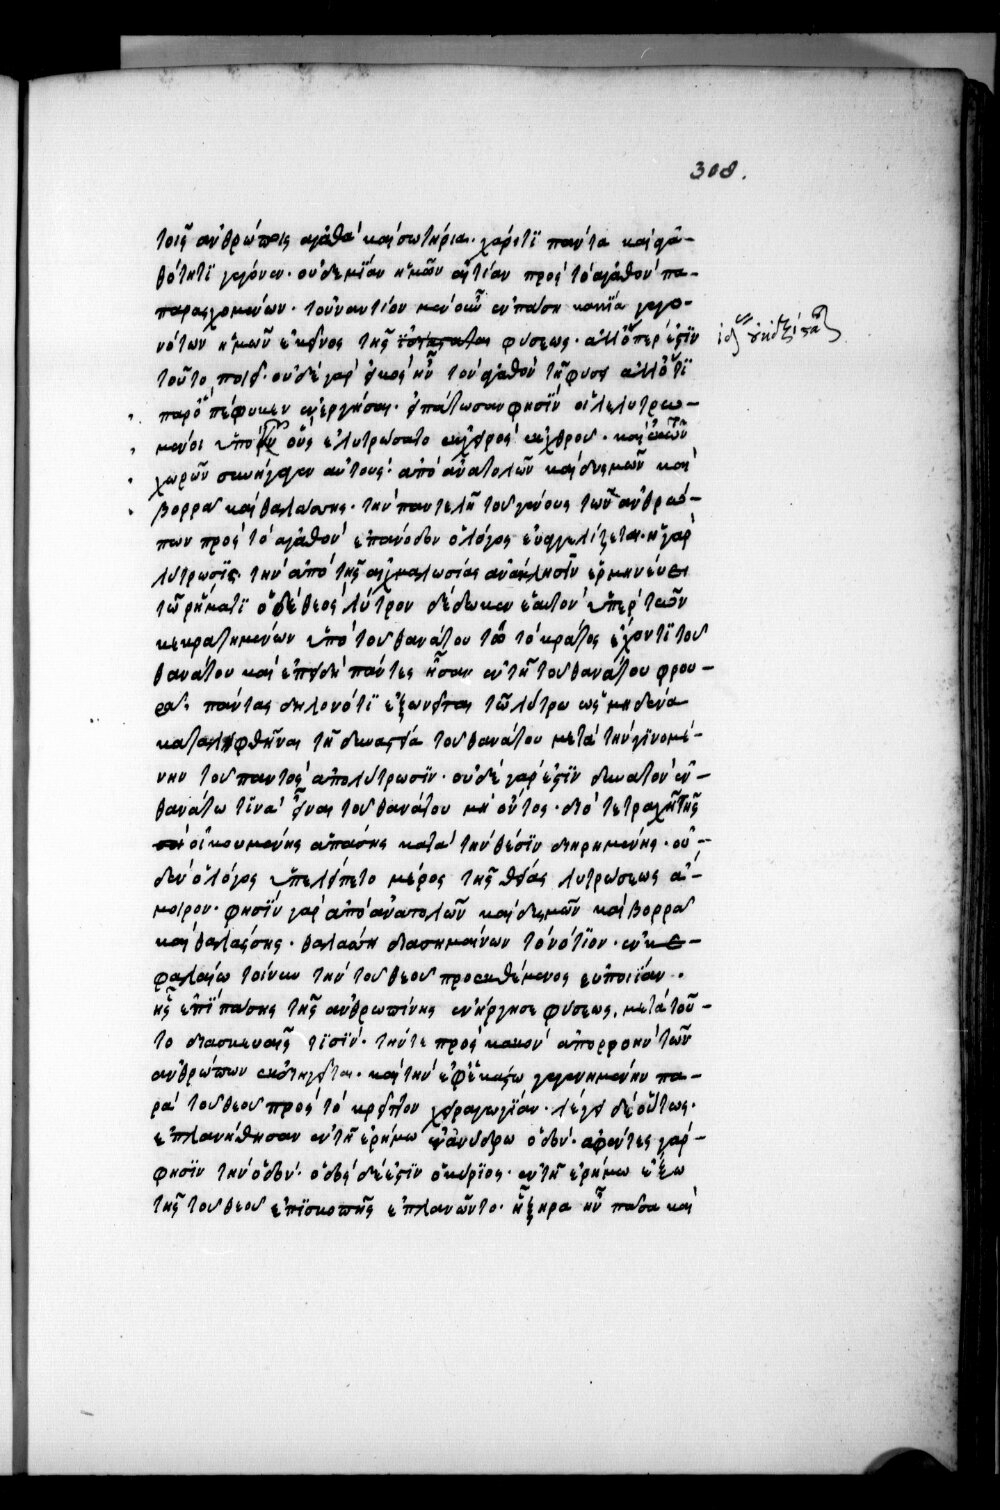 308.
τοῖς ἀνθρώποις ἀγαθὰ καὶ σωτήρια. χάριτϊ πάντα καὶ ἀγα-
θότητϊ γέγονεν. οὐδεμΐαν ἡμῶν αἰτίαν πρὸς τὸ ἀγαθὸν πα-
παρασχομένων. τοὐναντίον μὲν οὖν ἐν πάσῃ κακΐα γεγο-
νότων ἡμῶν ἐκεῖνος τῆς φύσεως. ἀλλ' ὅπερ ἐστὶν
τοῦτο ποιεῖ. οὐδὲ γὰρ εἰκὸς ἦν τὸν ἀγαθὸν τῇ φύσει ἄλλό τϊ
παρ' ὃ πέφυκεν ἐνεργῆσαι. εἰπάτωσαν φησϊν οἱ λελυτρω-
μένοι ὑπὸ κυ οὓς ἐλυτρώσατο ἐκ χειρὸς ἐχθροῦ. καὶ ἐκ τῶν
χωρῶν συνήγαγεν αὐτούς. ἀπὸ ἀνατολῶν καὶ δυσμῶν καὶ
βορρᾶ καὶ θαλάσσης. τὴν παντελῆ τοῦ γένους τῶν ἀνθρώ-
πων πρὸς τὸ ἀγαθὸν ἐπάνοδον ὁ λόγος εὐαγγελίζεται. ἡ γὰρ
λύτρωσϊς τὴν ἀπὸ τῆς αἰχμαλωσίας ἀνάκλησϊν ἑρμηνεύει
τῶ ρήματϊ ὁ δὲ θεὸς λύτρον δέδωκεν ἑαυτὸν ὑπὲρ τῶν
κεκρατημένων ὑπὸ τοῦ θανάτου τῶ τὸ κράτος ἔχοντϊ τοῦ
θανάτου καὶ ἐπειδὴ πάντες ἦσαν ἐν τῇ τοῦ θανάτου φρου-
ρᾶ. πάντας δηλονότϊ ἐξωνεῖται τῶ λύτρω ὡς μηδένα
καταλειφθῆναι τῇ δυναστεία τοῦ θανάτου μετὰ τὴν γϊνομέ-
νην τοῦ παντὸς ἀπολύτρωσϊν. οὐδὲ γάρ ἐστϊν δυνατὸν ἐν
θανάτω τϊνὰ εἶναι τοῦ θανάτου μὴ ὄντος. διὸ τετραχῇ τῆς
οἰκουμένης ἁπάσης κατὰ τὴν θέσϊν διῃρημένης. οὐ-
δὲν ὁ λόγος ὑπελίπετο μέρος τῆς θείας λυτρώσεως ἄ-
μοιρον. φησϊν γὰρ ἀπὸ ἀνατολῶν καὶ δυσμῶν καὶ βορρᾶ
καὶ θαλάσσης. θαλάσση διασημαίνων τὸ νότϊον. ἐν κε-
φαλαίω τοίνυν τὴν τοῦ θεοῦ προεκθέμενος εὐποιϊαν.
ἧς ἐπϊ πάσης τῆς ἀνθρωπίνης ἐνήργησε φύσεως, μετὰ τοῦ-
το διασκευαῖς τϊσϊν. τήν τε πρὸς κακὸν ἀπορροὴν τῶν
ἀνθρώπων ἐκδιηγεῖται. καὶ τὴν ἐφ' ἑκάστω γεγενημένην πα-
ρὰ τοῦ θεοῦ πρὸς τὸ κρεῖττον χειραγωγϊαν. λέγει δὲ οὕτως.
ἐπλανήθησαν ἐν τῇ ἐρήμω ἐν ἀνύδρω ὁδὸν. ἀφέντες γὰρ
φησϊν τὴν ὁδὸν. ὁδὸς δὲ ἐστϊν ὁ κύριος. ἐν τῇ ἐρήμω ἔξω
τῆς τοῦ θεοῦ ἐπϊσκοπῆς ἐπλανῶντο. ξηρὰ ἦν πᾶσα καὶ